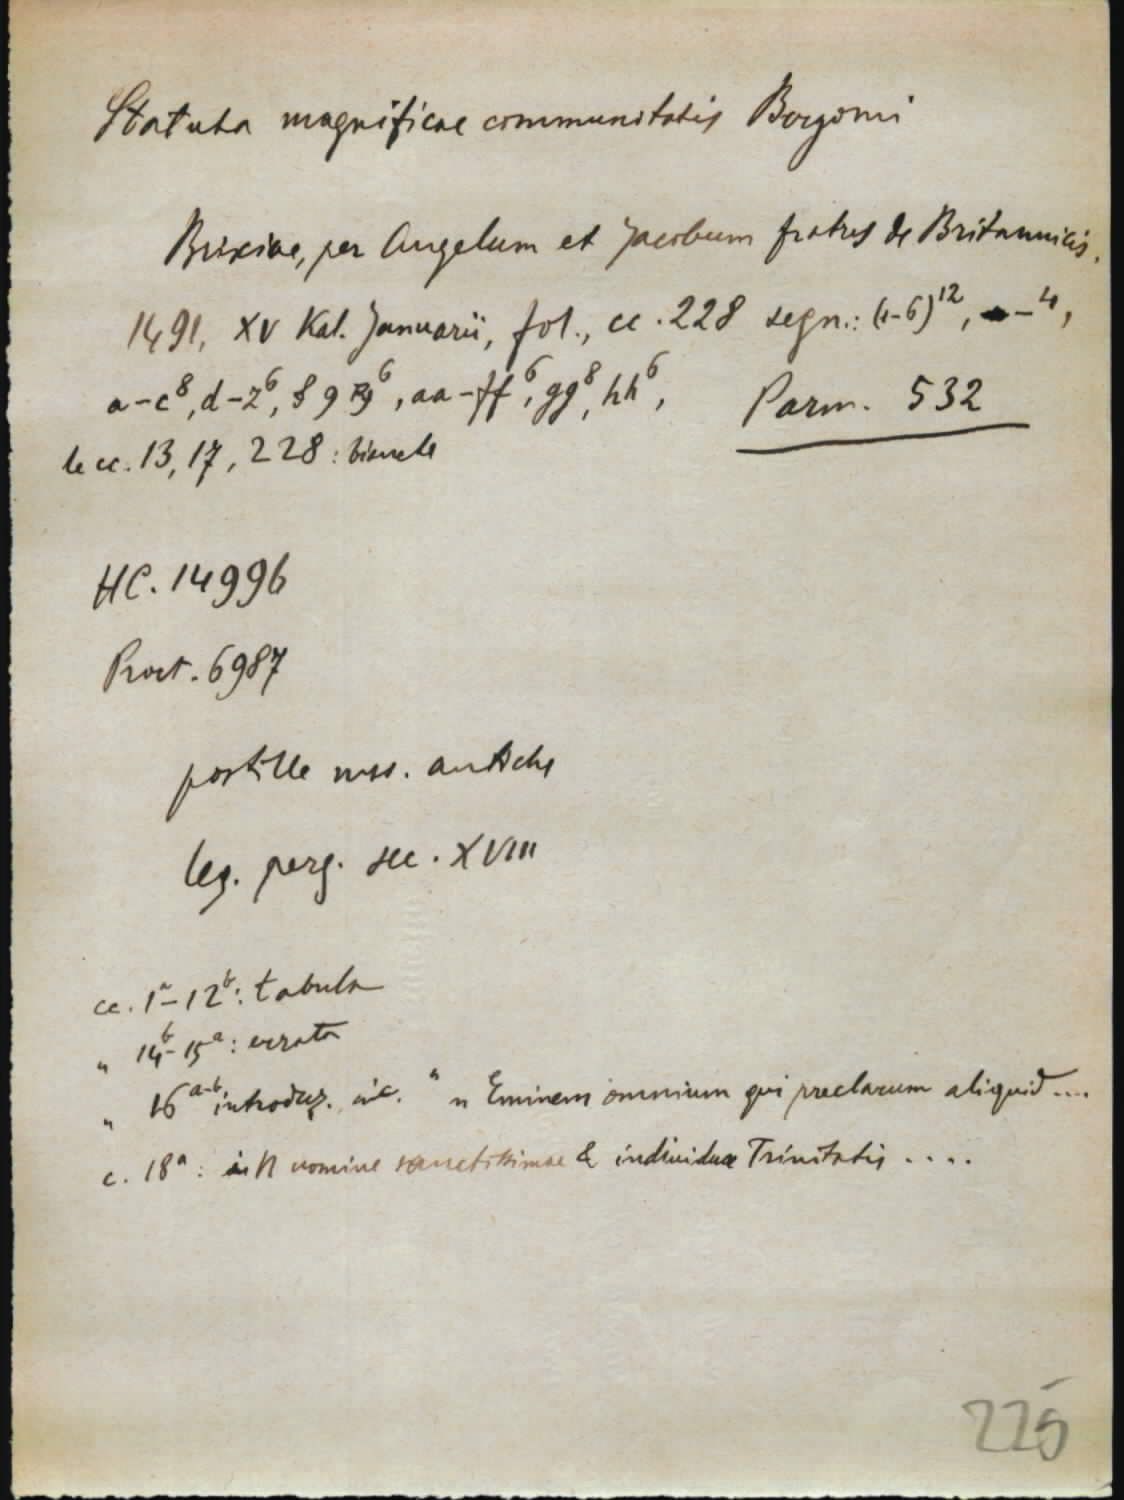 Statuta magnificae communitatis Bergomi
Brixiae, per Angelum et Jacobum fratres de Britannicis.
1491, XV Kal. Januarii, fol., cc. 228 segn.: (1-6)¹², - ⁴,
a-c⁸, d-z⁶, & 9 ꝶ⁶, aa-ff⁶, gg⁸, hh⁶,
Parm. 532
le cc. 13, 17, 228: bianche
HC. 14996
Proct. 6987
postille mss. antiche
leg. perg. sec. XVIII
cc. 1ᵃ-12ᵇ: tabula
" 14ᵇ-15ᵃ: errata
" 16ᵃ⁻ᵇ introduz. inc. " n Eminem omnium qui preclarum aliquid ....
c. 18ᵃ: in N nomine sanctissimae & individuae Trinitatis ....
225